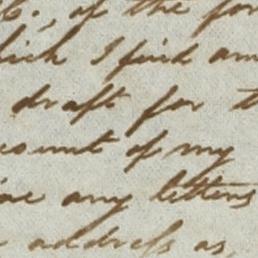 of the for
which I find am
draft for t
count of my
any letters
address as